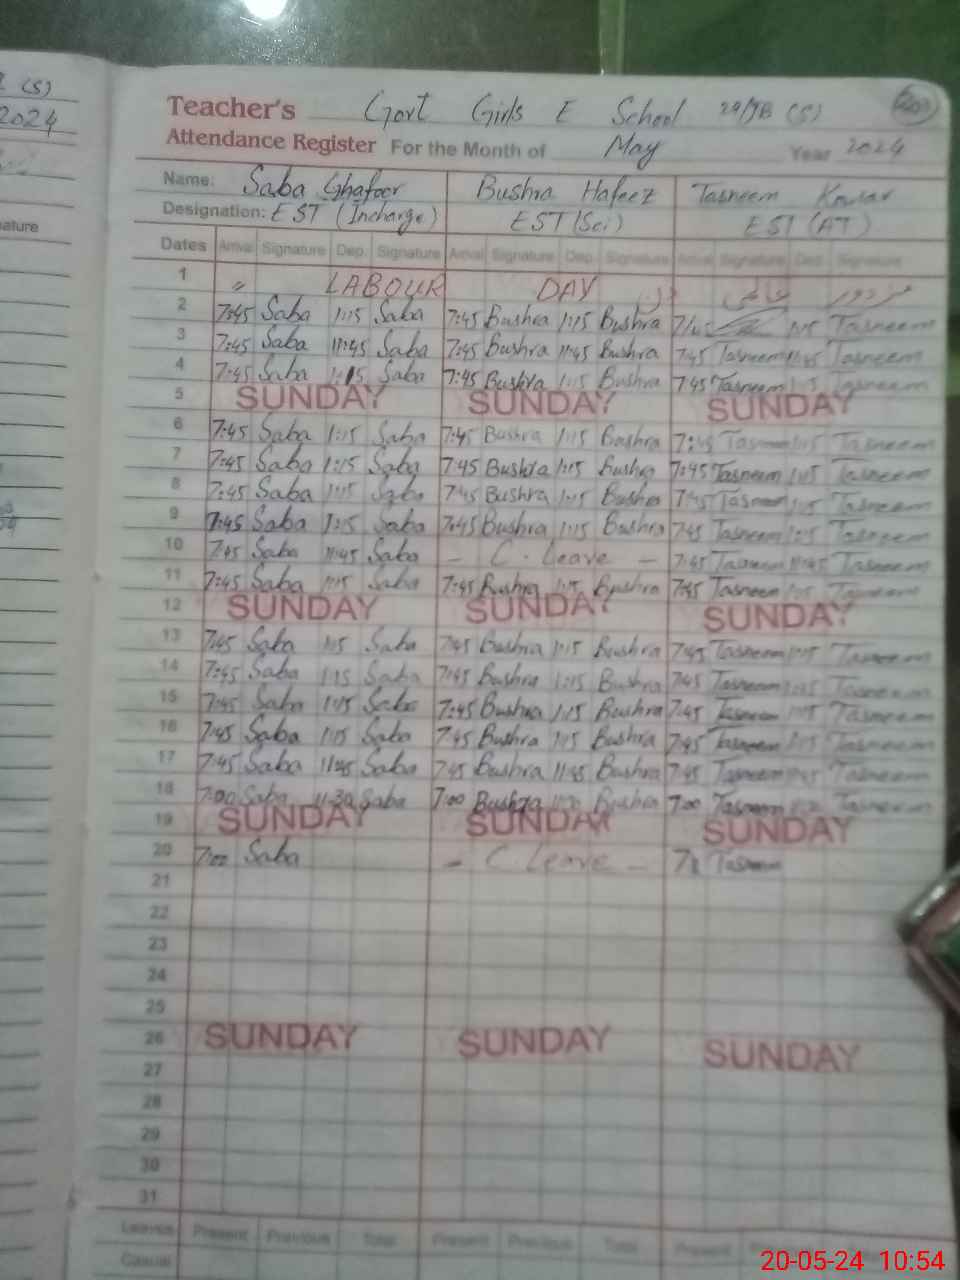 (S)
2024
Teacher's Govt Girls E School 29/JB (S)
Attendance Register For the Month of May Year 2024
Name: Saba Ghafoor Bushra Hafeez Tasneem Kousar
Designation: EST (Incharge) EST (Sci) EST (AT)
Dates Arrival Signature Dep. Signature Arrival Signature Dep. Signature Arrival Signature Dep. Signature
1 LABOUR DAY
2 7:45 Saba 1:15 Saba 7:45 Bushra 1:15 Bushra Tasneem
3 7:45 Saba 11:45 Saba 7:45 Bushra 11:45 Bushra 7:45 Tasneem 11:45 Tasneem
4 7:45 Saba 1:15 Saba 7:45 Bushra 1:15 Bushra 7:45 Tasneem Tasneem
5 SUNDAY SUNDAY SUNDAY
6 7:45 Saba 1:15 Saba 7:45 Bushra 1:15 Bushra 7:45 Tasneem 1:15 Tasneem
7 7:45 Saba 1:15 Saba 7:45 Bushra 1:15 Bushra 7:45 Tasneem 1:15 Tasneem
8 7:45 Saba 1:15 Saba 7:45 Bushra 1:15 Bushra 7:45 Tasneem 1:15 Tasneem
9 7:45 Saba 1:15 Saba 7:45 Bushra 1:15 Bushra 7:45 Tasneem 1:15 Tasneem
10 7:45 Saba 11:45 Saba - C. Leave - 7:45 Tasneem 11:45 Tasneem
11 7:45 Saba 1:15 Saba 7:45 Bushra 1:15 Bushra 7:45 Tasneem 1:15 Tasneem
12 SUNDAY SUNDAY SUNDAY
13 7:45 Saba 1:15 Saba 7:45 Bushra 1:15 Bushra 7:45 Tasneem 1:15 Tasneem
14 7:45 Saba 1:15 Saba 7:45 Bushra 1:15 Bushra 7:45 Tasneem 1:15 Tasneem
15 7:45 Saba 1:15 Saba 7:45 Bushra 1:15 Bushra 7:45 Tasneem 1:15 Tasneem
16 7:45 Saba 1:15 Saba 7:45 Bushra 1:15 Bushra 7:45 Tasneem 1:15 Tasneem
17 7:45 Saba 11:45 Saba 7:45 Bushra 11:45 Bushra 7:45 Tasneem 11:45 Tasneem
18 7:00 Saba 11:30 Saba 7:00 Bushra 11:30 Bushra 7:00 Tasneem Tasneem
19 SUNDAY SUNDAY SUNDAY
20 7:00 Saba - C Leave - Tasneem
21
22
23
24
25
26 SUNDAY SUNDAY SUNDAY
27
28
29
30
31
Leaves Present Previous Total Present Previous Total Present
Casual
20-05-24 10:54